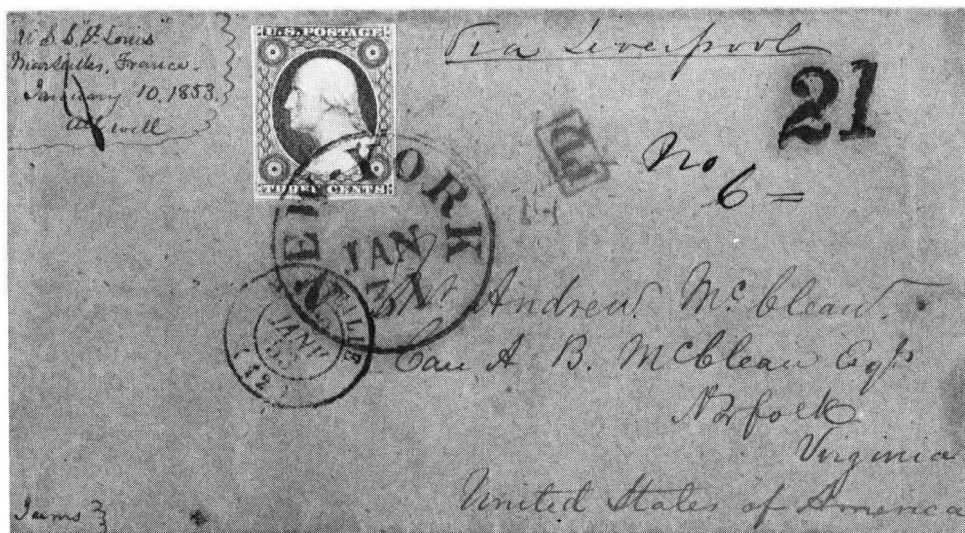 U.S.S. "St. Louis"
Marseilles, France.
January 10, 1853.
All well
U.S. POSTAGE
THREE CENTS
Via Liverpool
21
PD
No
6 =
NEW YORK
JAN
31
JANV
53
(12)
Mr. Andrew. McClean.
Care A. B. McClean Esqr
Norfolk
Virginia
United States of America